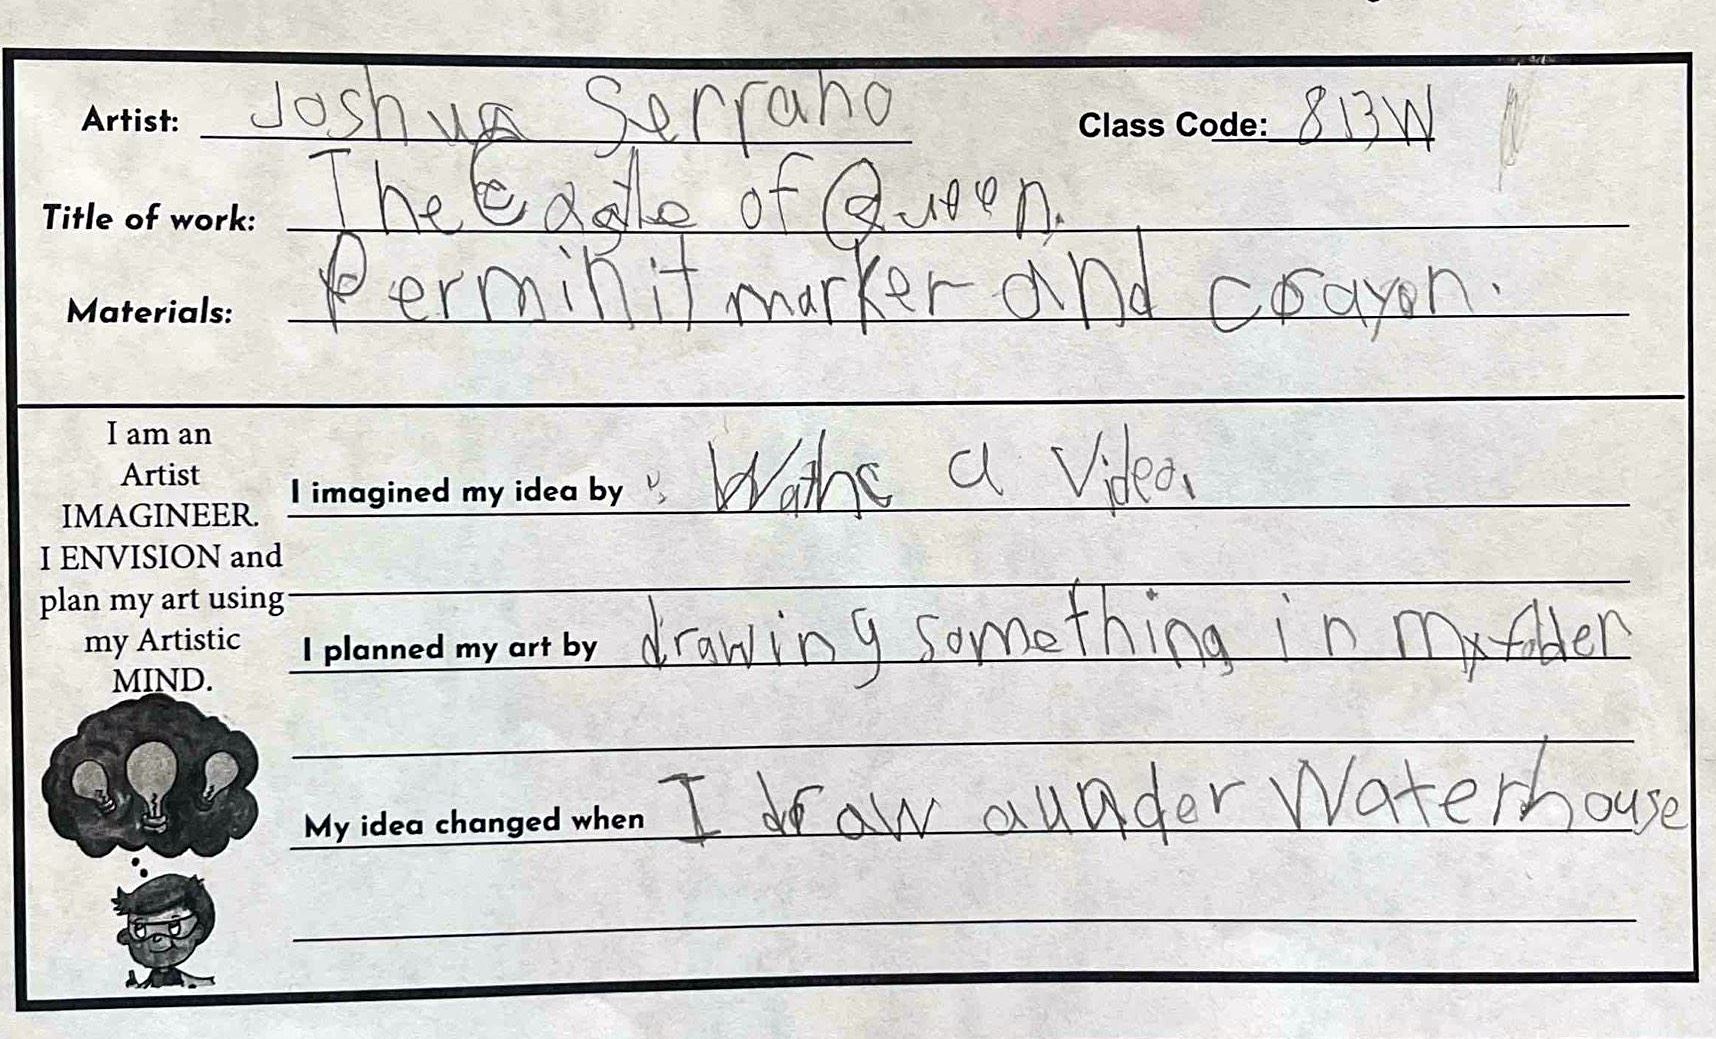 Artist: Joshua Serrano Class Code: 813W
Title of work: The Eagle of Queen.
Materials: Perminit marker and crayon.
I am an
Artist
IMAGINEER.
I ENVISION and
plan my art using
my Artistic
MIND.
I imagined my idea by : Wathc a Video.
I planned my art by drawing something in my folder
My idea changed when I draw a under Water house